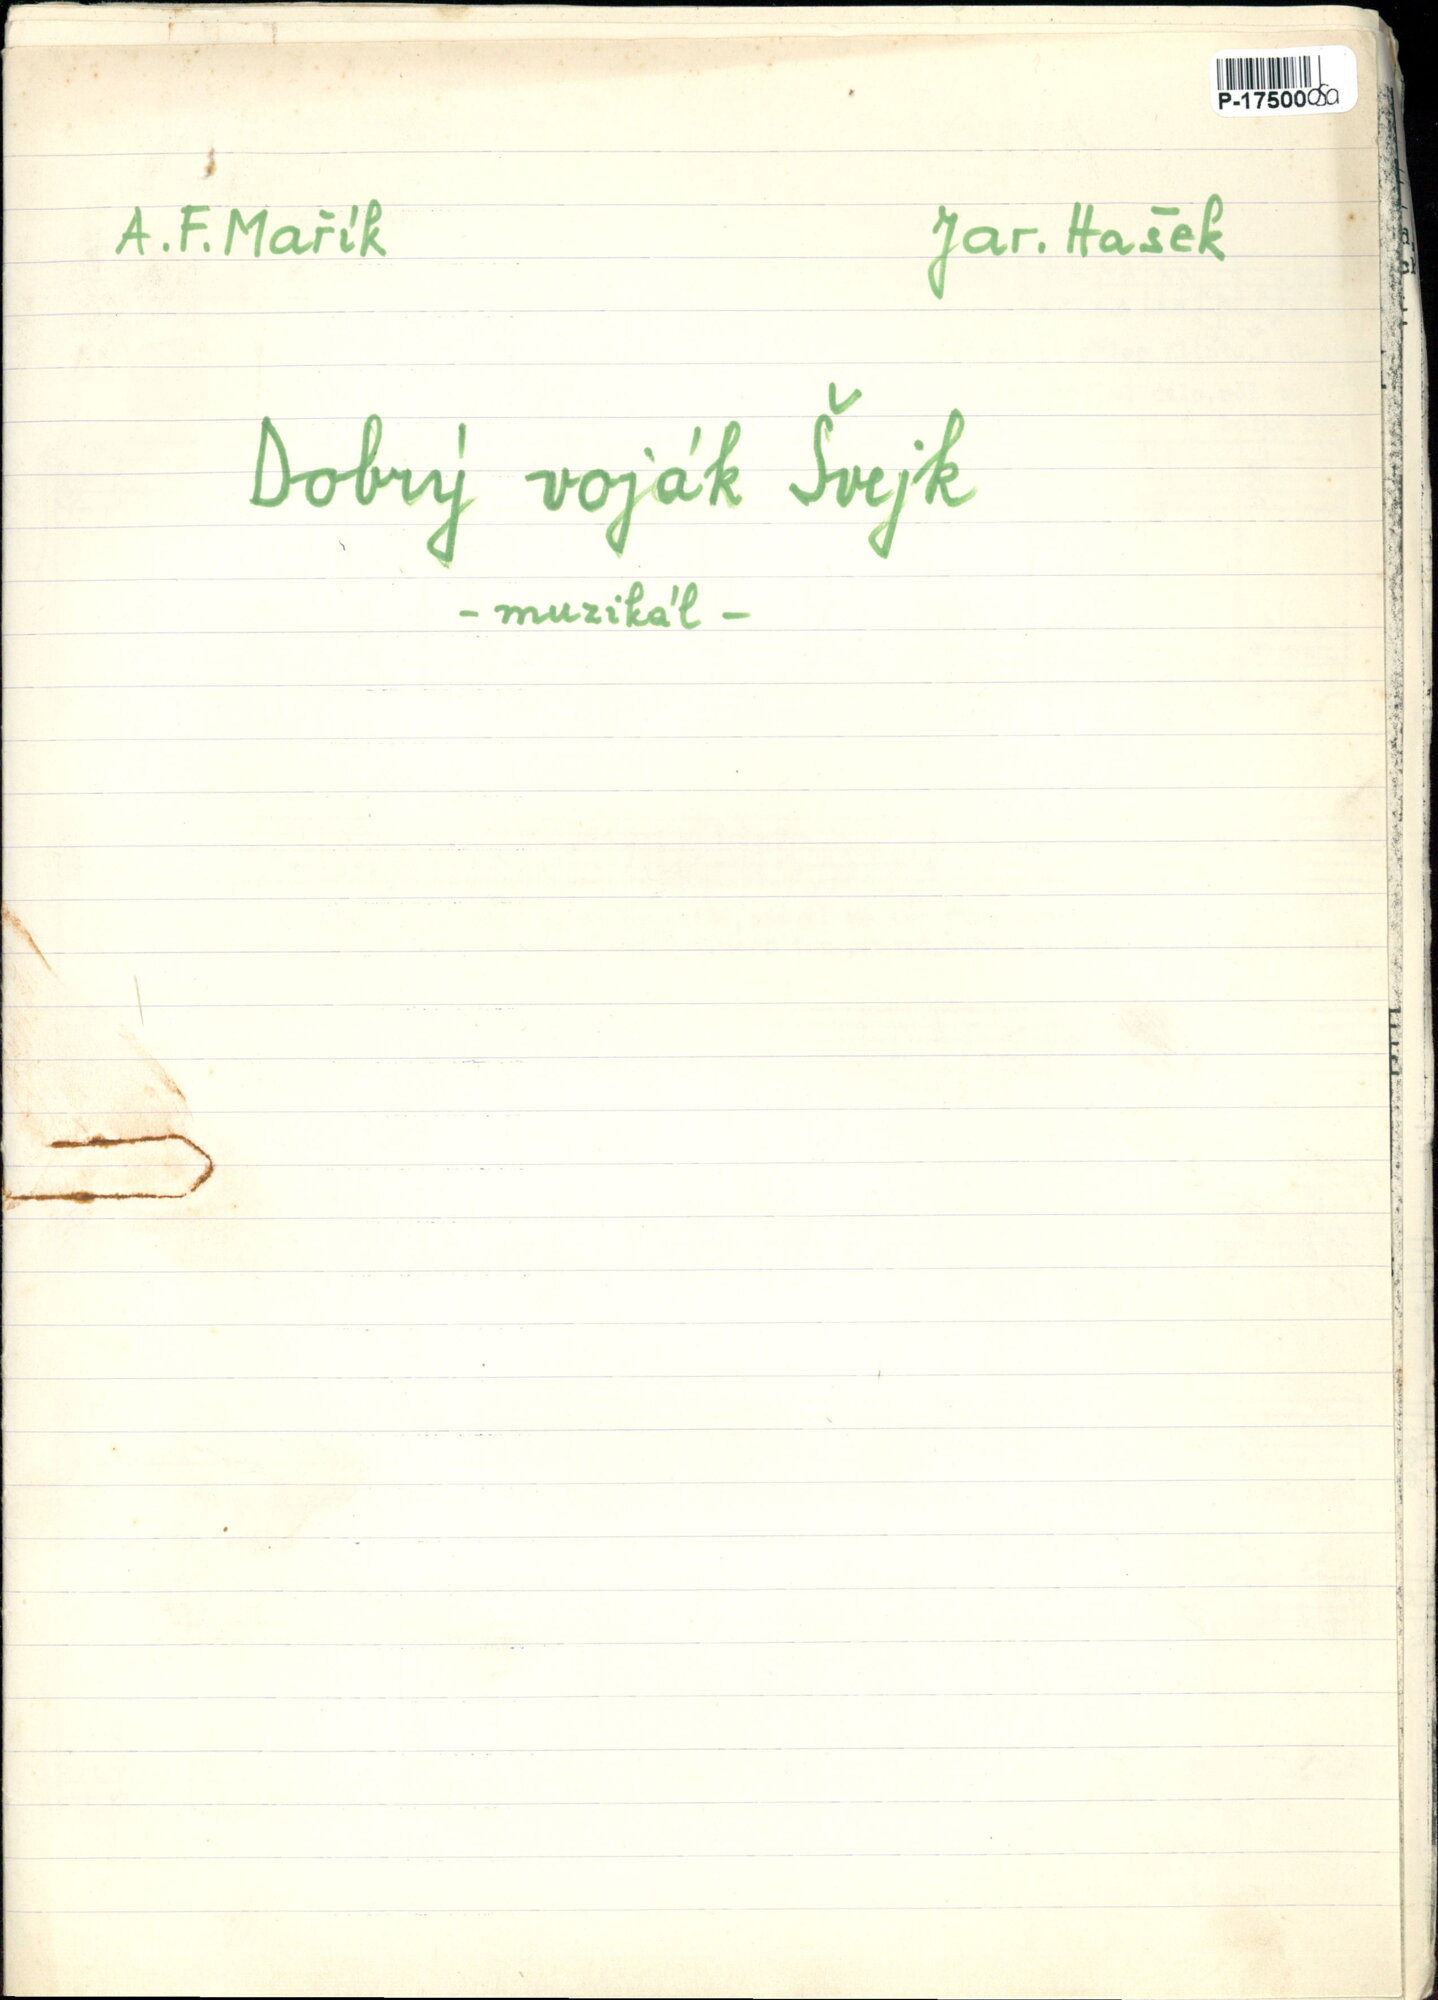 P-17500
A.F. Mařík
Jar. Hašek
Dobrý voják Švejk
- muzikál -